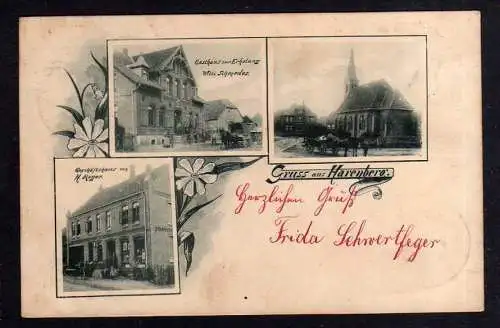 Gasthaus zur Erholung
Will. Schroeder.
Geschäftshaus von
H. Meyer.
Gruss aus Harenberg.
Herzlichen Gruß
Frida Schwertfeger